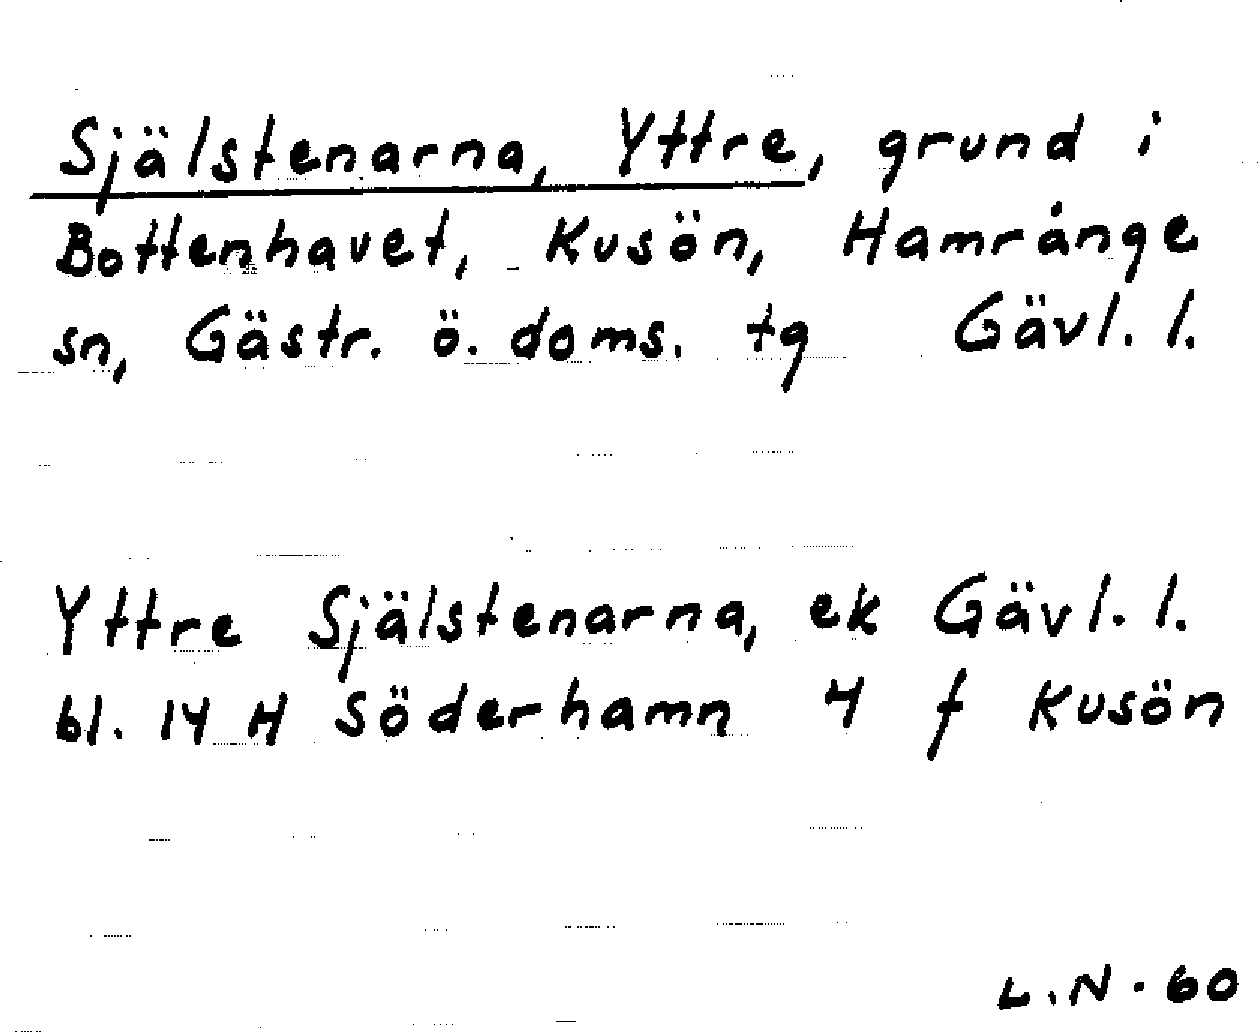 Själstenarna, Yttre, grund i
Bottenhavet, Kusön, Hamrånge
sn, Gästr. ö. doms. tg Gävl. l.
Yttre Själstenarna, ek Gävl. l.
bl. 14 H Söderhamn 4 f Kusön
L.N. 60